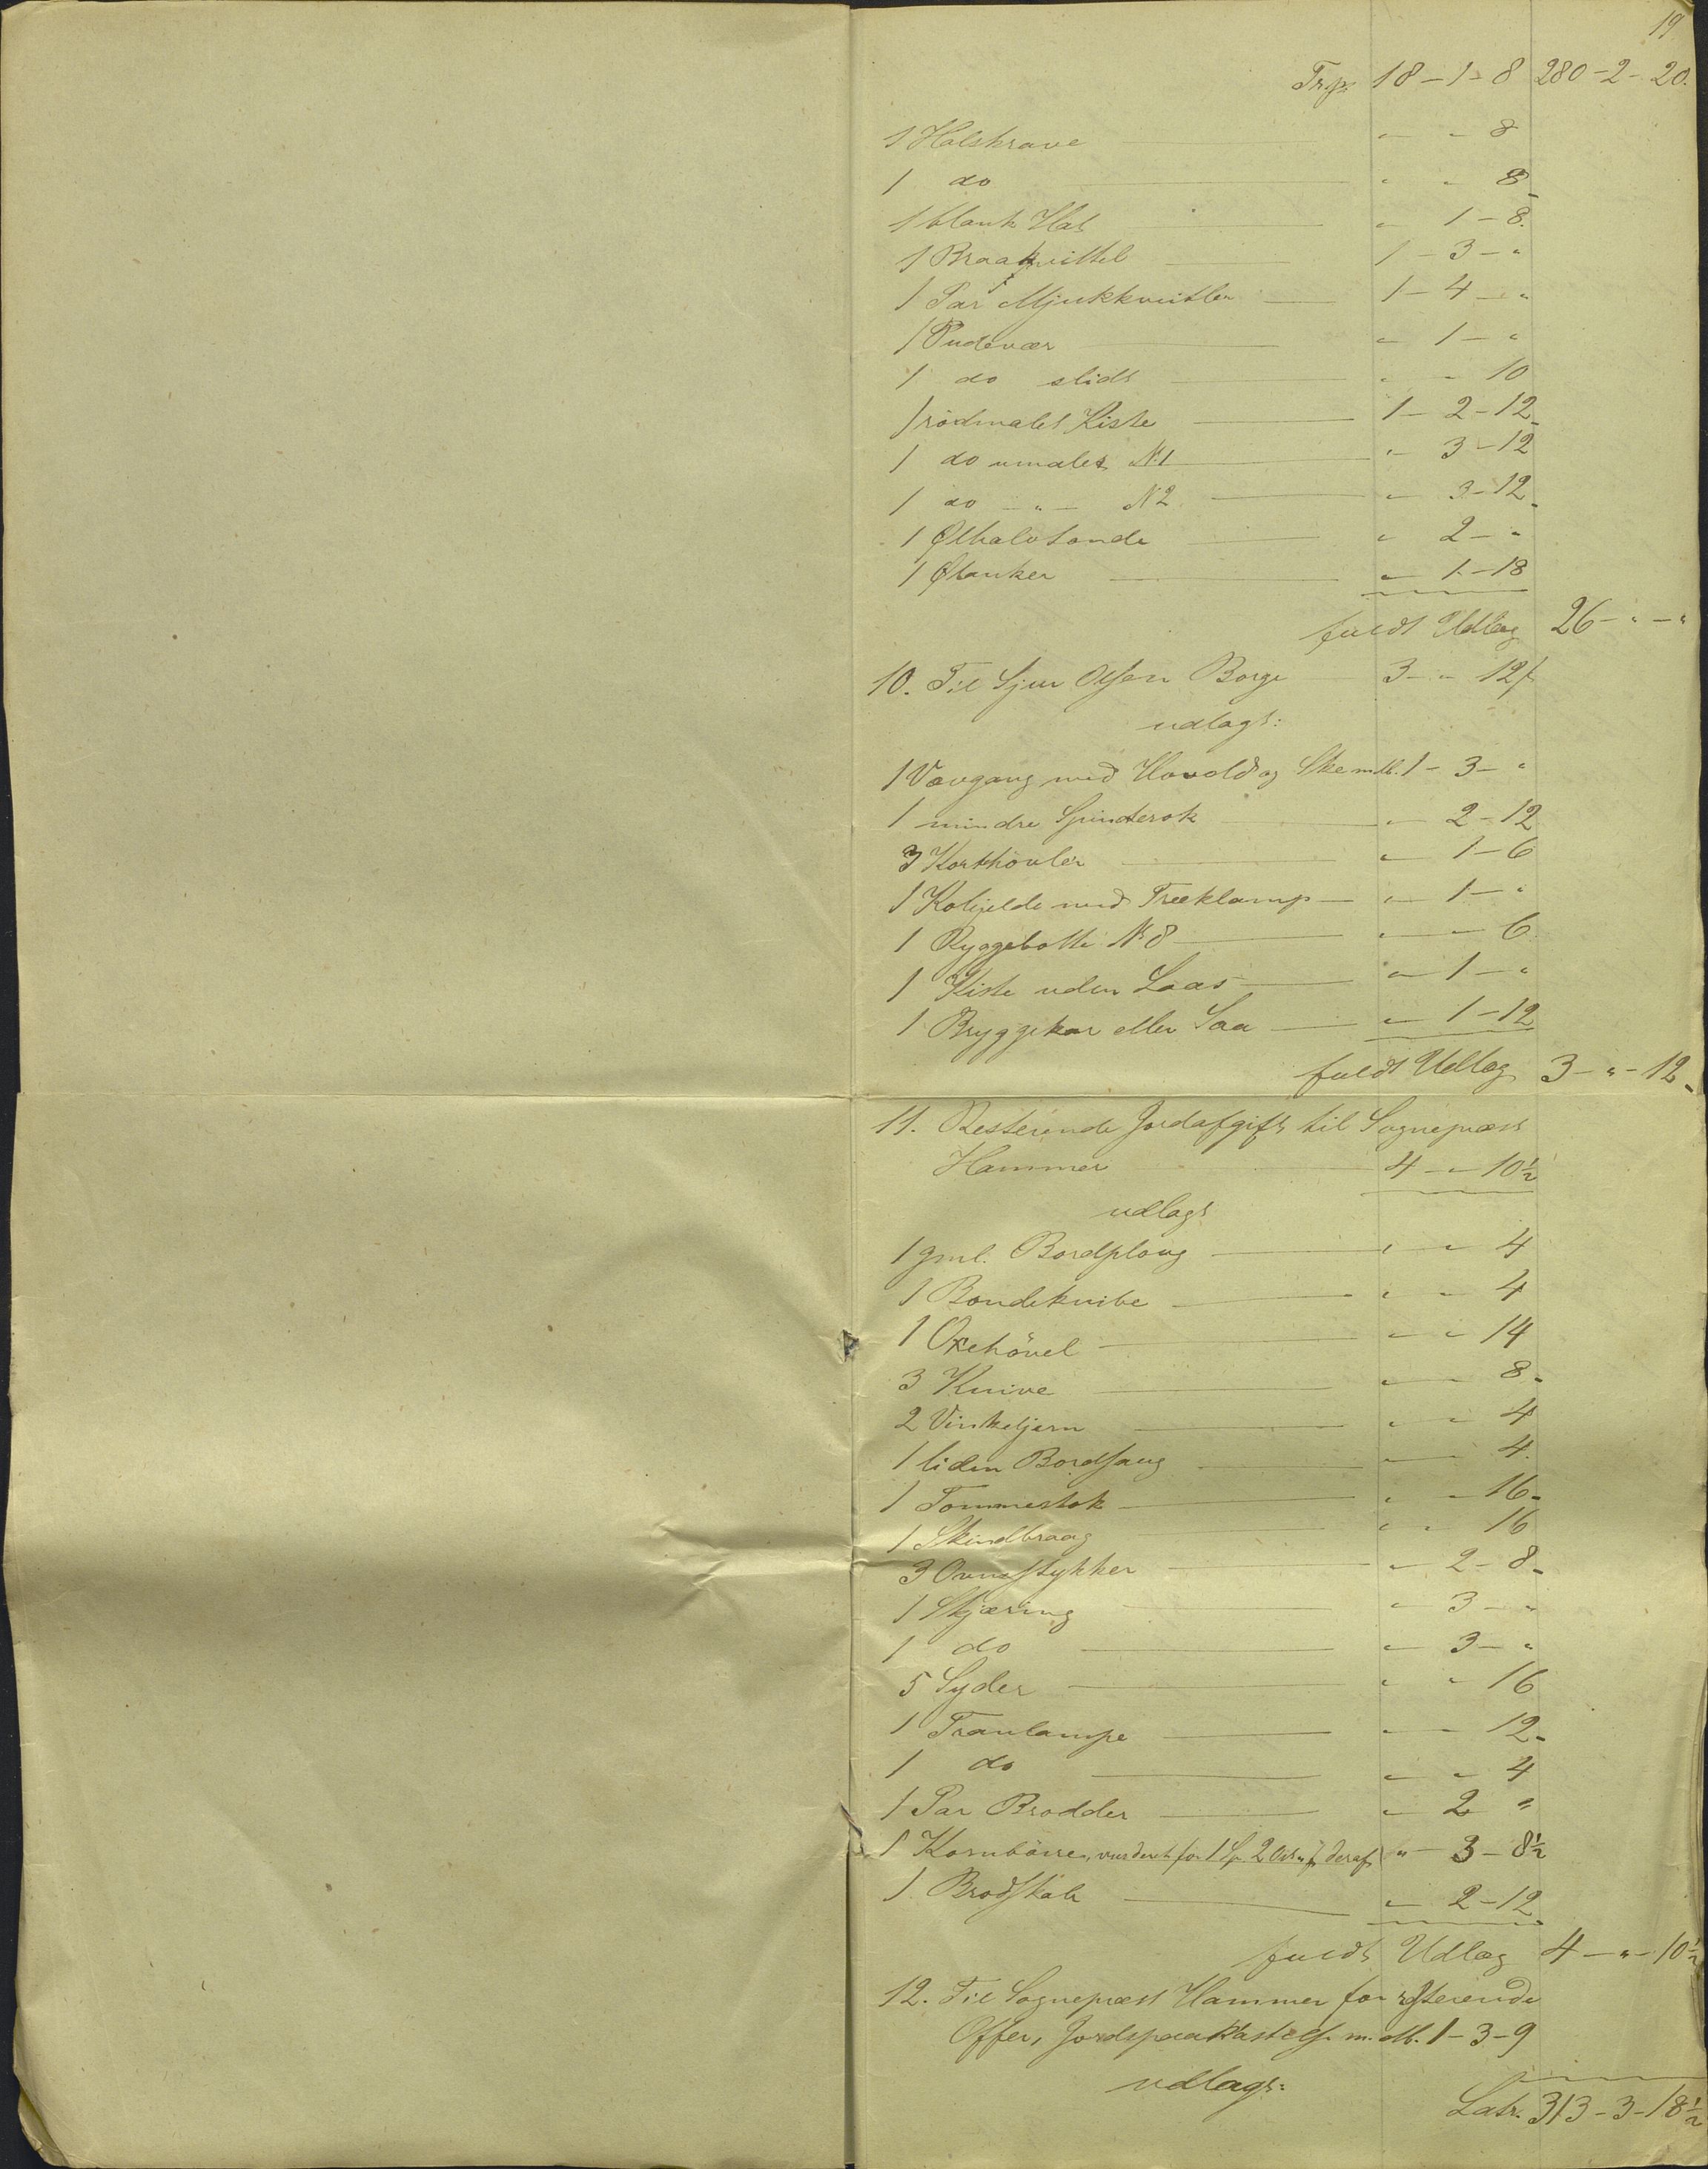 19
Trsp. 18 – 1 – 8 280 – 2 – 20.
1 Halskrave " – " – 8
1 do " " 8
1 blank Hat " 1 – 8.
1 Braakvittel 1 – 3 – "
1 Par Mjukkvitler 1 – 4 – "
1 Pudevær " 1 – "
1 do slidt " " 10
1 rödmalet Kiste 1 – 2 – 12
1 do umalet N1 " 3 – 12
1 do – " – N2 " 3 – 12
1 Ølhalvtønde " 2 – "
1 Ølanker " 1 – 18
fuldt Udlæg 26 – " – "
10. Til Sjur Olsen Borge 3 – " 12 f
udlagt:
1 Vævgang med Hovold og Ske mdl. 1 – 3 – "
1 mindre Spinderok " 2 – 12
3 Korthövler " 1 – 6
1 Kobjelde med Træklamp " 1 – "
1 Ryggebøtte N 8 " – " 6
1 Kiste uden Laas " 1 – "
1 Bryggekar eller Saa " 1 – 12
fuldt Udlæg 3 – " – 12
11. Resterende Jordafgift til Sognepræst
Hammer 4 – " – 10½
udlagt
1 gml. Bordploug " " 4
1 Bondeknibe " " 4
1 Oxehövel " " 14
3 Knive " " 8
2 Vinkeljern " " 4
1 liden Bordsaug " " 4
1 Tommestok " " 16
1 Skindbraag " " 16
3 Ovnsstykker " 2 – 8
1 Skjæring " 3 – "
1 do " 3 – "
5 Syder " " 16
1 Tranlampe " " 12
1 do " " 4
1 Par Brodder " 2 "
1 Kornbörre, vurderet for 1 Sp. 2 Ort, deraf " 3 – 8½
1 Brödskab " 2 – 12
fuldt Udlæg 4 – " – 10½
12. Til Sognepræst Hammer for resterende
Offer, Jordspaakastelse m. dl. 1 – 3 – 9
udlagt:
Latr. 313 – 3 – 18½